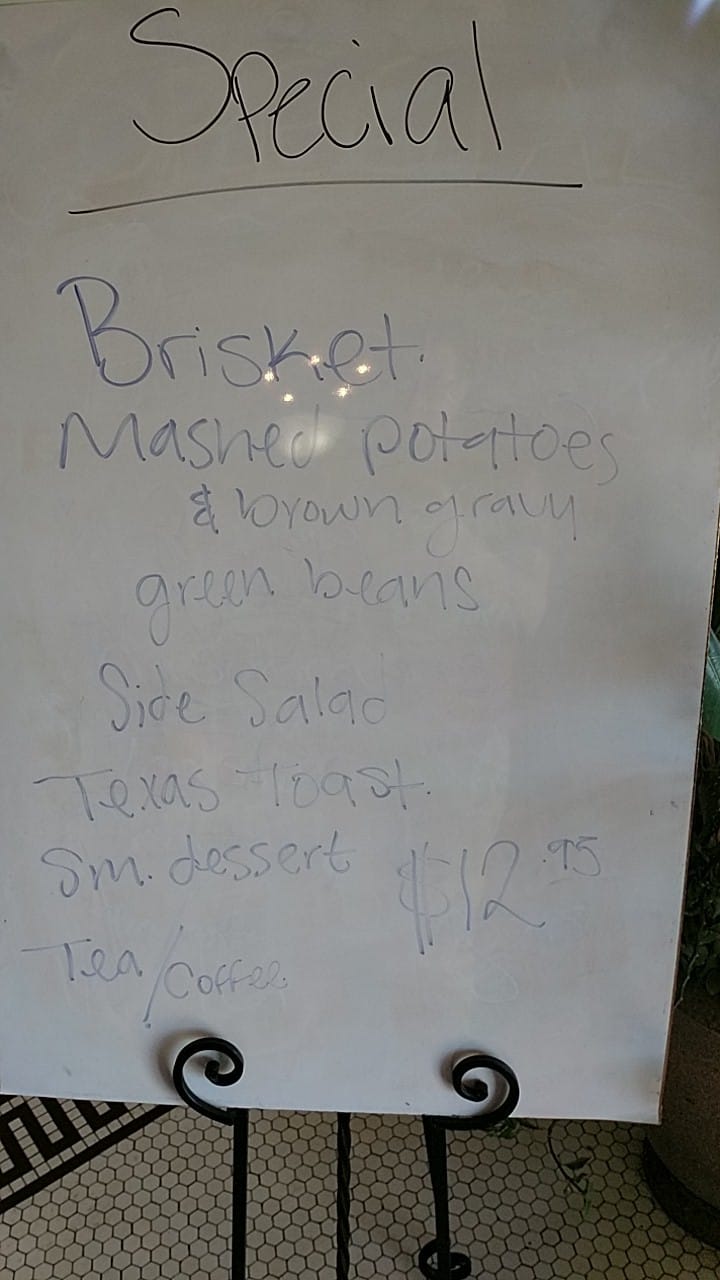 Special
Brisket.
Mashed potatoes
& brown gravy
green beans
Side Salad
Texas Toast.
Sm. dessert $12.95
Tea/Coffee